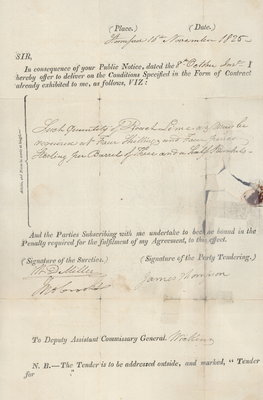 (Place.) (Date.)
15th November 1825
SIR,
In consequence of your Public Notice, dated the 8th October Inst. I
hereby offer to deliver on the Conditions Specified in the Form of Contract
already exhibited to me, as follows, VIZ:
Such Quantity of Lime as may be
required at Four Shillings and
Sterling per Barrel of Three and a Half Bushels.
And the Parties Subscribing with me undertake to become bound in the
Penalty required for the fulfilment of my Agreement, to this effect.
(Signature of the Sureties.) (Signature of the Party Tendering.)
James
To Deputy Assistant Commissary General.
N. B.—The Tender is to be addressed outside, and marked, "Tender
for "